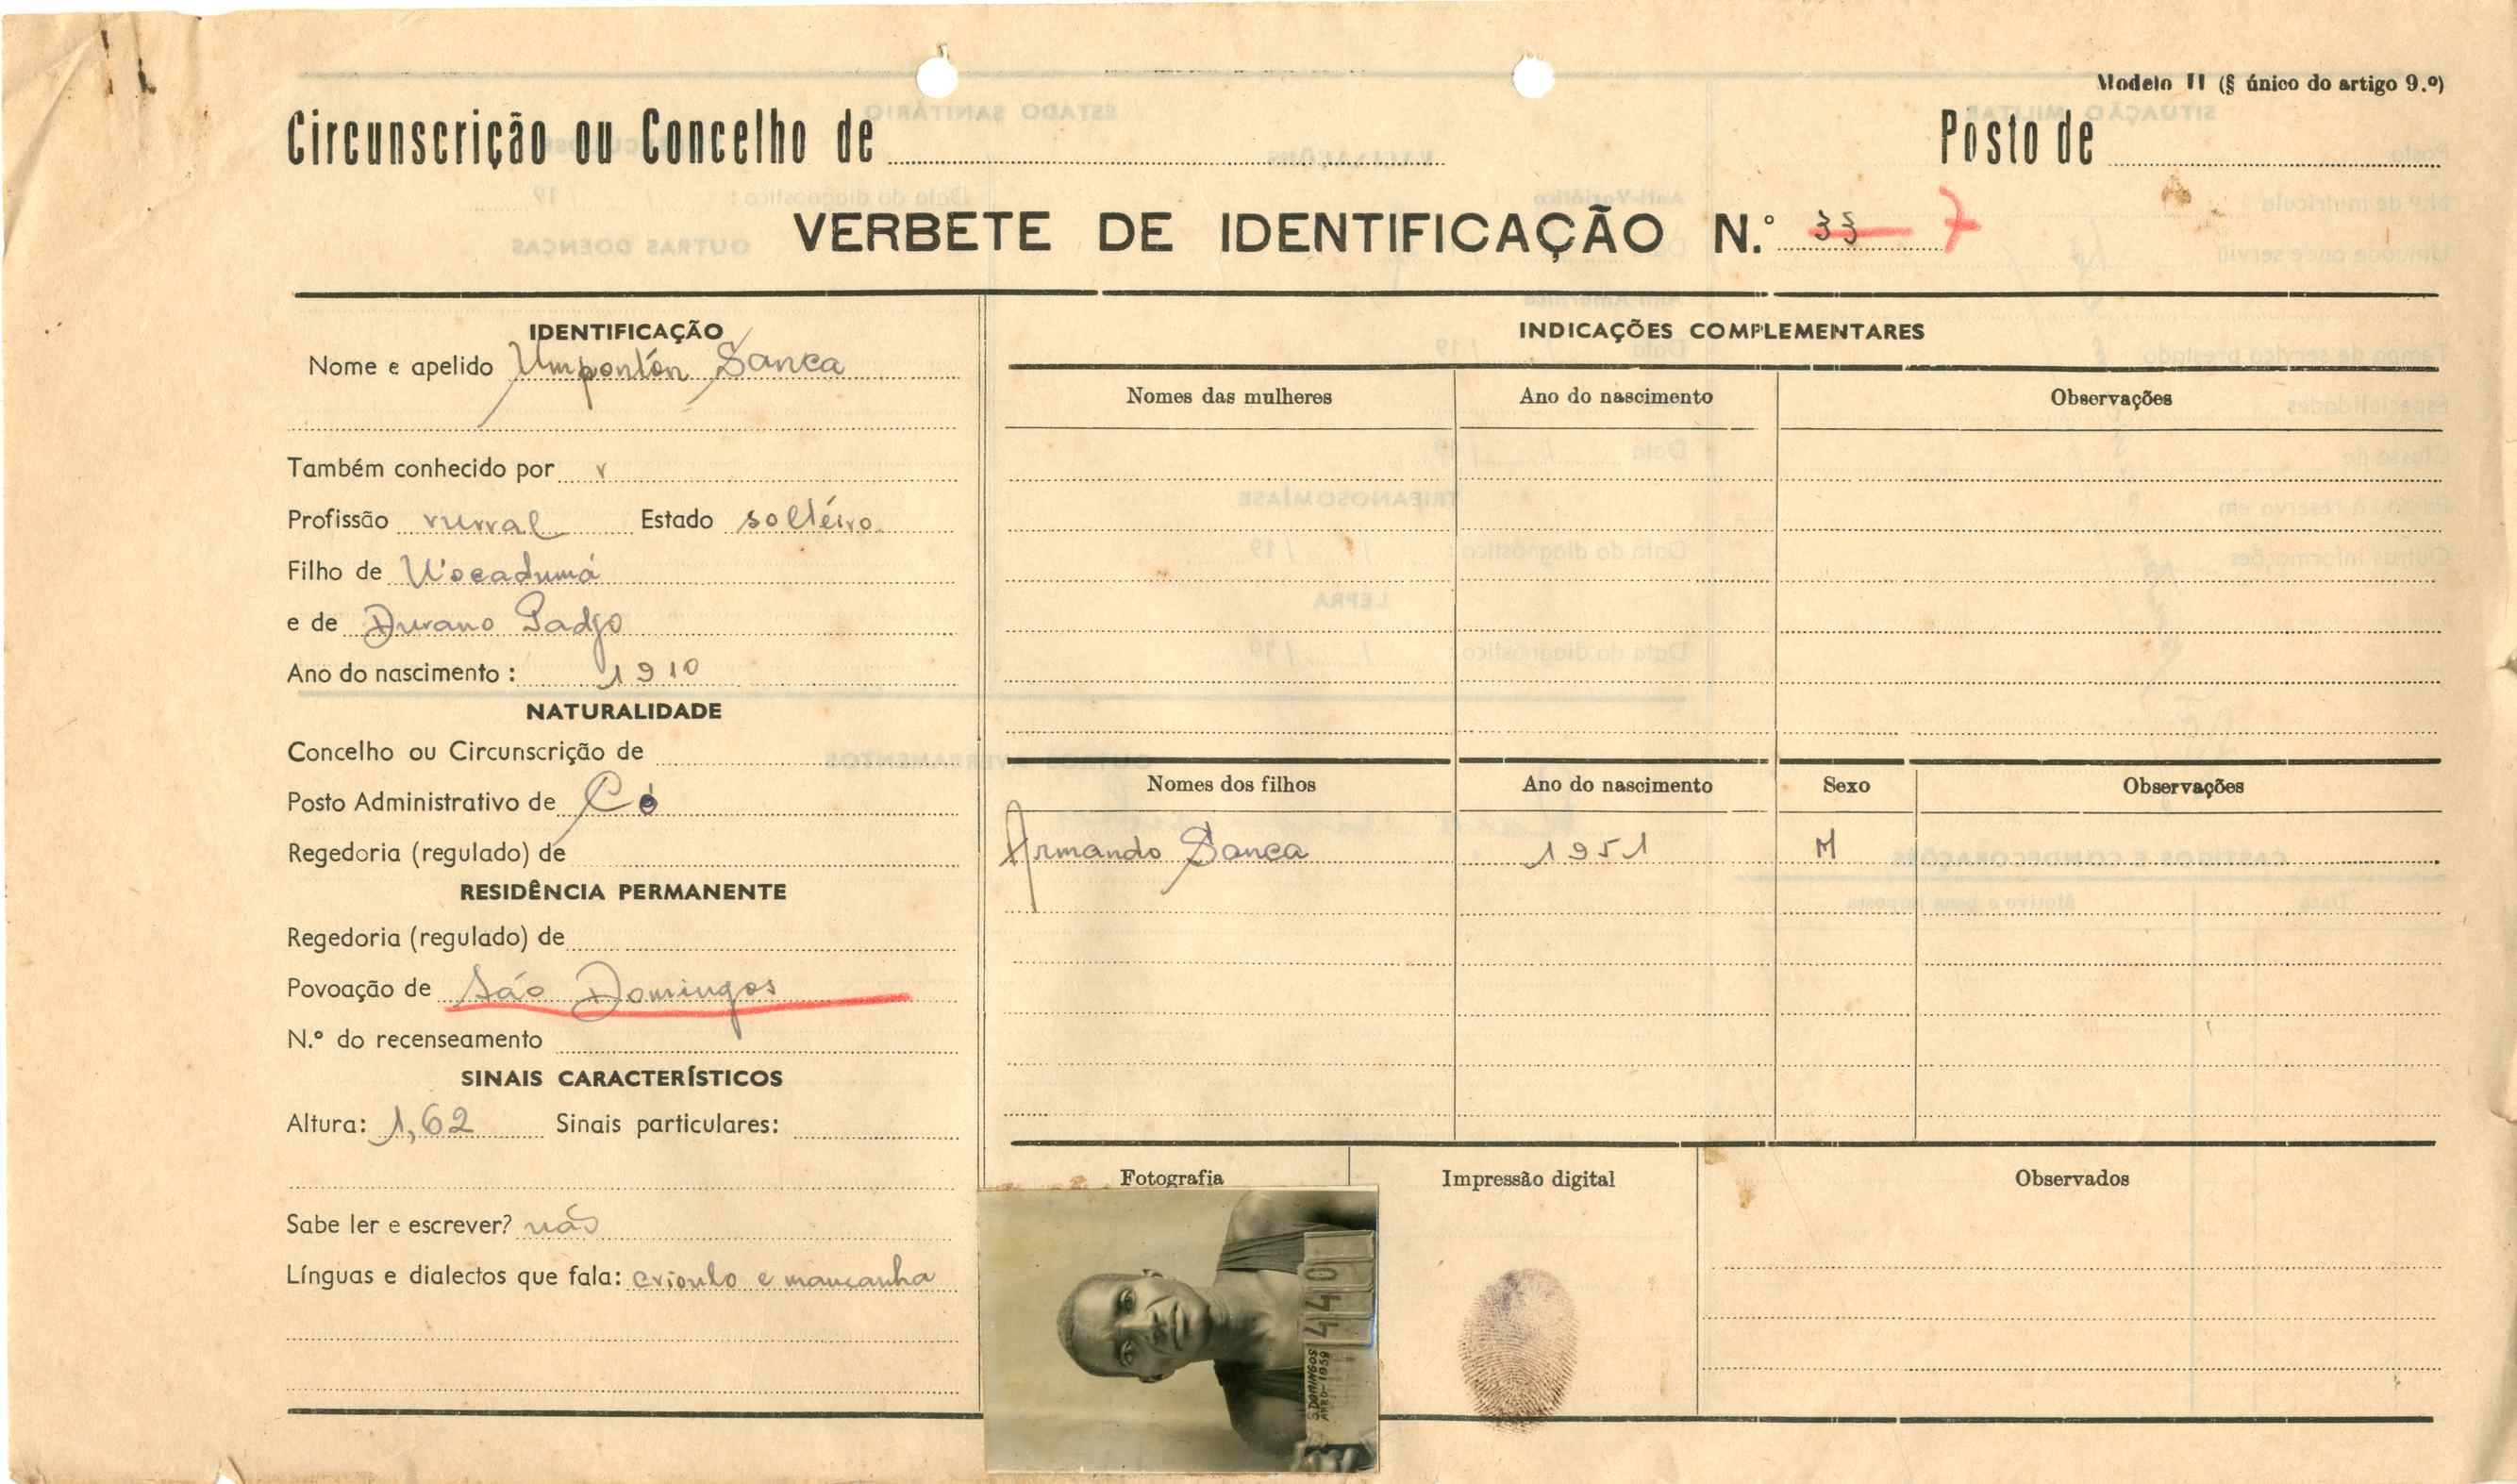 Modelo II (§ único do artigo 9.º)
Circunscrição ou Concelho de Posto de
VERBETE DE IDENTIFICAÇÃO N.º 33 7
IDENTIFICAÇÃO
Nome e apelido Umpontón Sanca
Também conhecido por
Profissão rural Estado soltéiro
Filho de
e de Durano Padjo
Ano do nascimento: 1910
NATURALIDADE
Concelho ou Circunscrição de
Posto Administrativo de Có
Regedoria (regulado) de
RESIDÊNCIA PERMANENTE
Regedoria (regulado) de
Povoação de São Domingos
N.º do recenseamento
SINAIS CARACTERÍSTICOS
Altura: 1,62 Sinais particulares:
Sabe ler e escrever? não
Línguas e dialectos que fala: crioulo e mancanha
INDICAÇÕES COMPLEMENTARES
Nomes das mulheres Ano do nascimento Observações
Nomes dos filhos Ano do nascimento Sexo Observações
Armando Sanca 1951 M
Fotografia Impressão digital Observados
440
S. DOMINGOS
ANO-1959